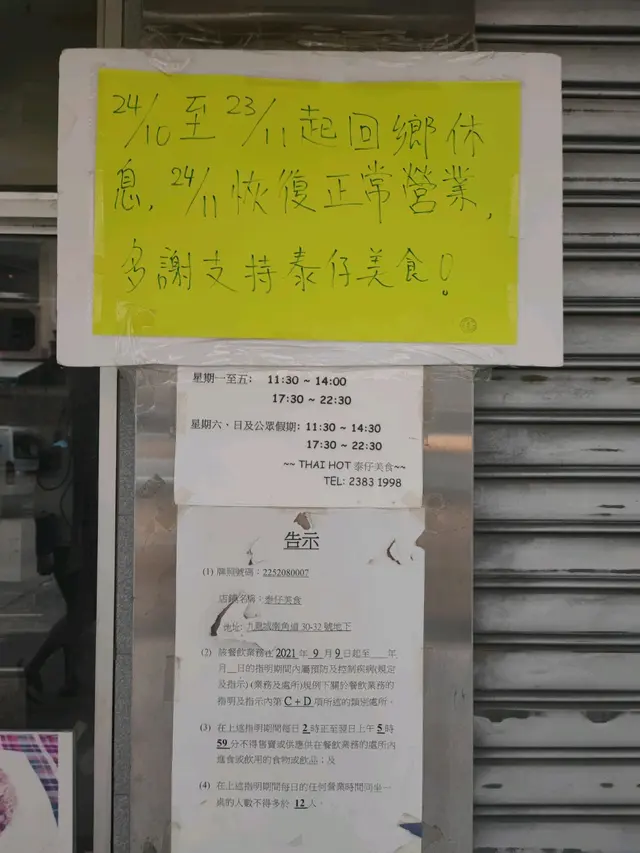 24/10至23/11起回鄉休
息，24/11恢復正常營業，
多謝支持泰仔美食！
星期一至五： 11:30 ~ 14:00
17:30 ~ 22:30
星期六、日及公眾假期: 11:30 ~ 14:30
17:30 ~ 22:30
~~ THAI HOT 泰仔美食~~
TEL: 2383 1998
告示
(1) 牌照號碼：2252080007
店舖名稱：泰仔美食
地址: 九龍城南角道 30-32 號地下
(2) 該餐飲業務在 2021 年 9 月 9 日起至__年
月__日的指明期間內屬預防及控制疾病(規定
及指示)(業務及處所)規例下關於餐飲業務的
指明及指示內第 C + D 項所述的類別處所。
(3) 在上述指明期間每日 2 時正至翌日上午 5 時
59 分不得售賣或供應供在餐飲業務的處所內
進食或飲用的食物或飲品；及
(4) 在上述指明期間每日的任何營業時間同坐一
桌的人數不得多於 12 人。